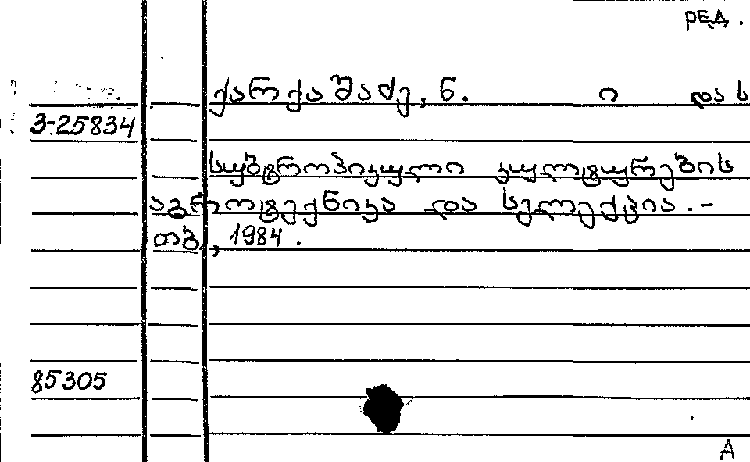 ред.
ქარქაშაძე, ნ. ი და ს
3-25834
სუბტროპიკული კულტურების
აგროტექნიკა და სელექცია.-
თბ., 1984.
85305
A